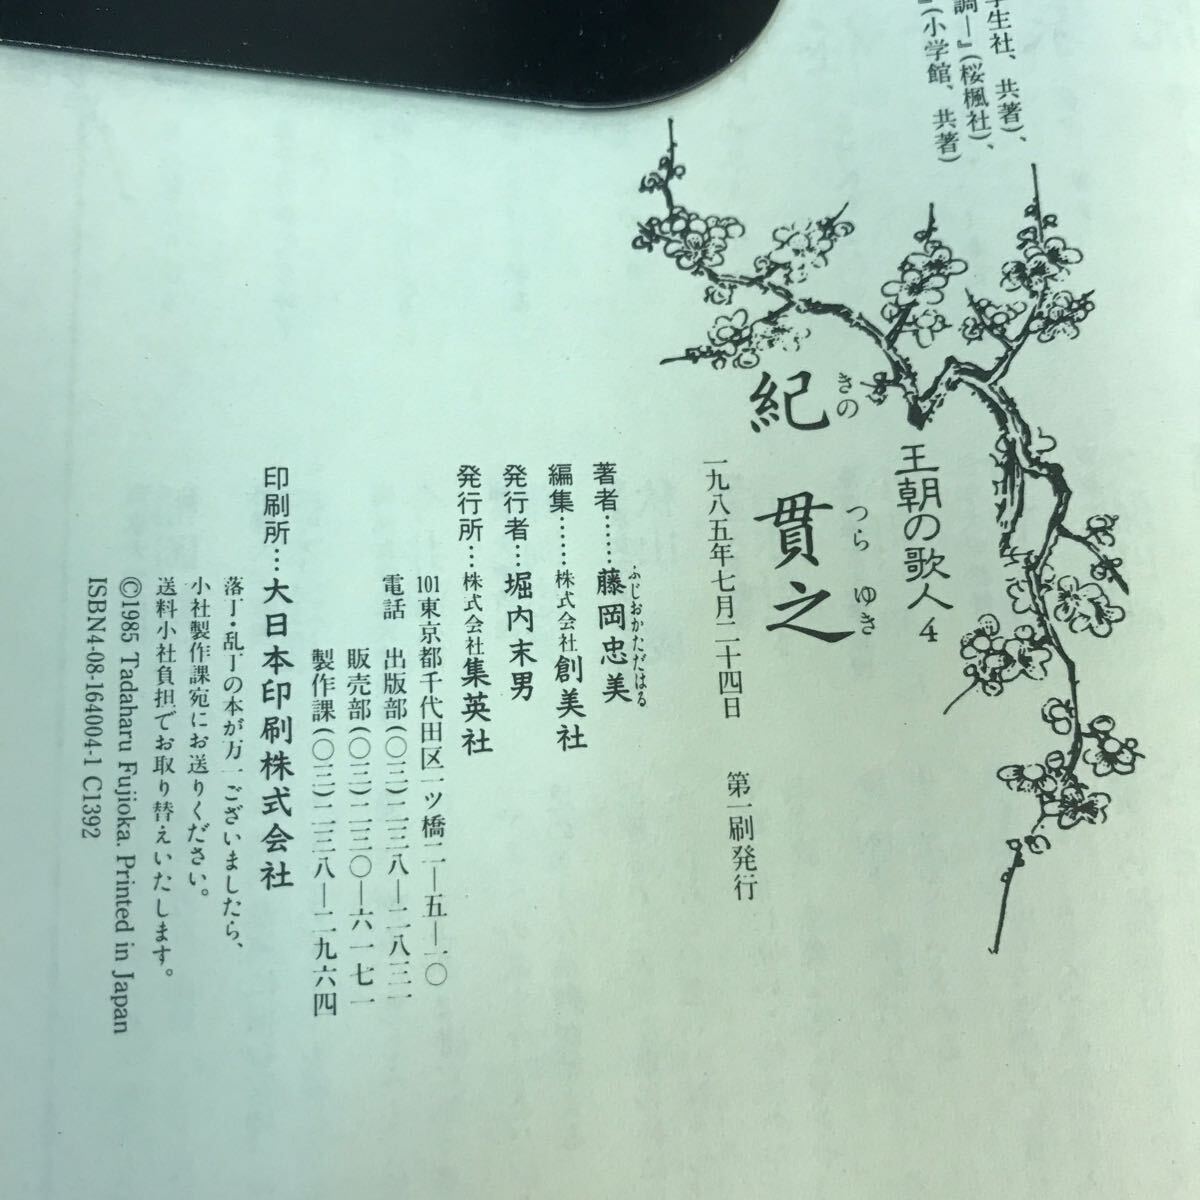 学生社、共著)、
調―』(桜楓社)、
』(小学館、共著)
王朝の歌人4
きの つら ゆき
紀貫之
一九八五年七月二十四日 第一刷発行
ふじおかただはる
著者……藤岡忠美
編集……株式会社創美社
発行者…堀内末男
発行所…株式会社集英社
101東京都千代田区一ツ橋二―五―一〇
電話 出版部(〇三)二三八―二八三一
販売部(〇三)二三〇―六一七一
製作課(〇三)二三八―二九六四
印刷所…大日本印刷株式会社
落丁・乱丁の本が万一ございましたら、
小社製作課宛にお送りください。
送料小社負担でお取り替えいたします。
©1985 Tadaharu Fujioka. Printed in Japan
ISBN4-08-164004-1 C1392